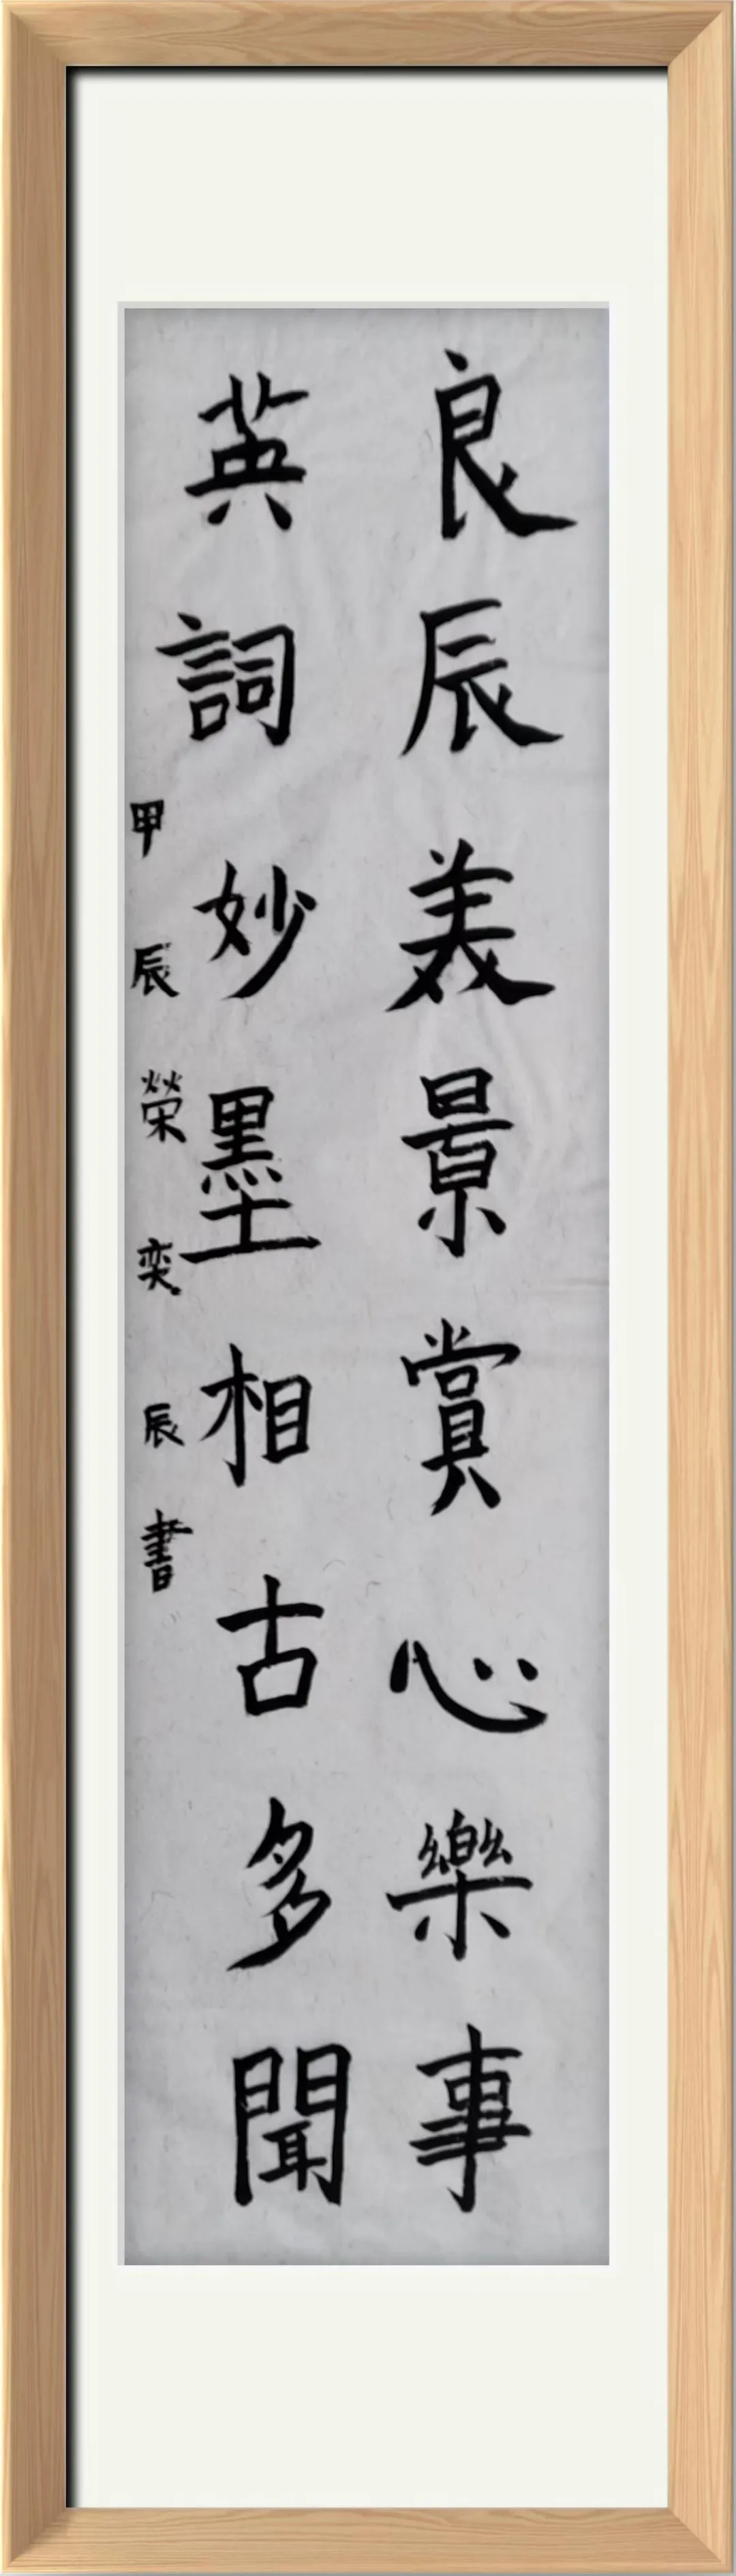 良辰美景賞心樂事
英詞妙墨相古多聞
甲辰榮奕辰書